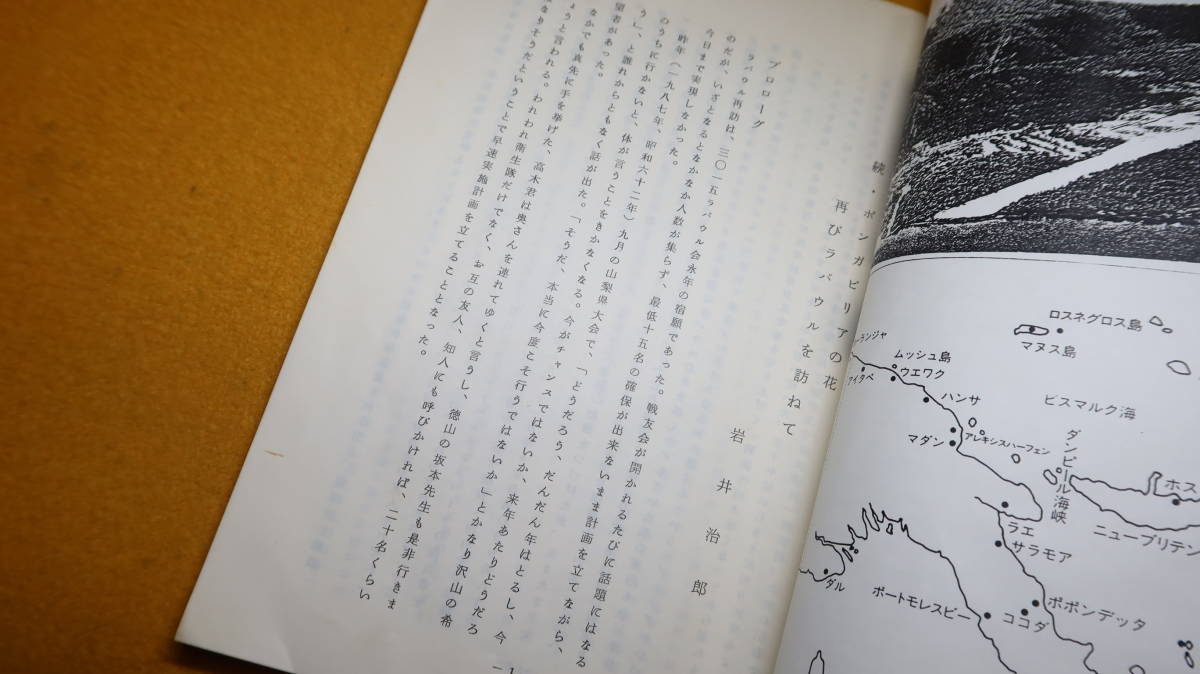 続・ボンガビリアの花
再びラバウルを訪ねて
岩井治郎
プロローグ
ラバウル再訪は、三〇一五ラバウル会永年の宿願であった。戦友会が開かれるたびに話題にはなる
のだが、いざとなるとなかなか人数が集らず、最低十五名の確保が出来ないまま計画を立てながら、
今日まで実現しなかった。
昨年(一九八七年、昭和六十二年)九月の山梨県大会で、「どうだろう、だんだん年はとるし、今
のうちに行かないと、体が言うことをきかなくなる。今がチャンスではないか、来年あたりどうだろ
う」、と誰れからともなく話が出た。「そうだ、本当に今度こそ行うではないか」とかなり沢山の希
望者があった。
なかでも真先に手を挙げた、高木君は奥さんを連れてゆくと言うし、徳山の坂本先生も是非行きま
ょうと言われる。われわれ衛生隊だけでなく、お互の友人、知人にも呼びかければ、二十名くらい
なりそうだということで早速実施計画を立てることとなった。
— 1
ロスネグロス島
マヌス島
ーランジャ
ムッシュ島
アイタペ
ウエワク
ハンサ
ビスマルク海
マダン
アレキシスハーフェン
ダンピール海峡
ホス
ニューブリテン
ラエ
サラモア
ダル
ポートモレスビー
ココダ
ポポンデッタ